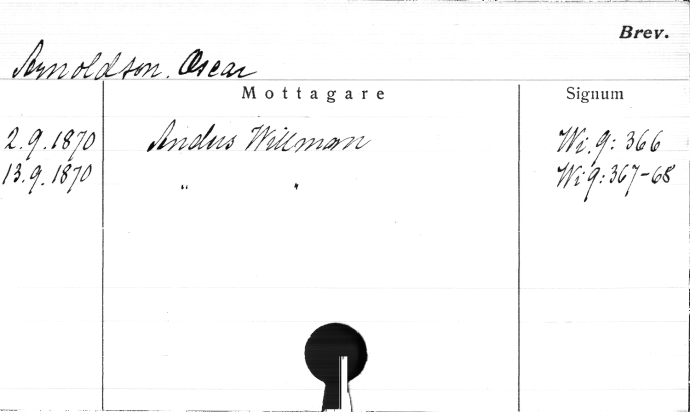 Brev.
Arnoldson, Oscar
Mottagare Signum
2.9.1870 Anders Willman Wi.9:366
13.9.1870 " " Wi9:367-68